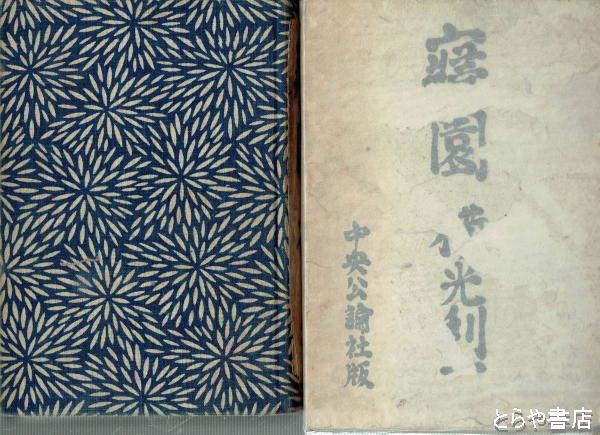 寢園
光利
中央公論社版
とらや書店